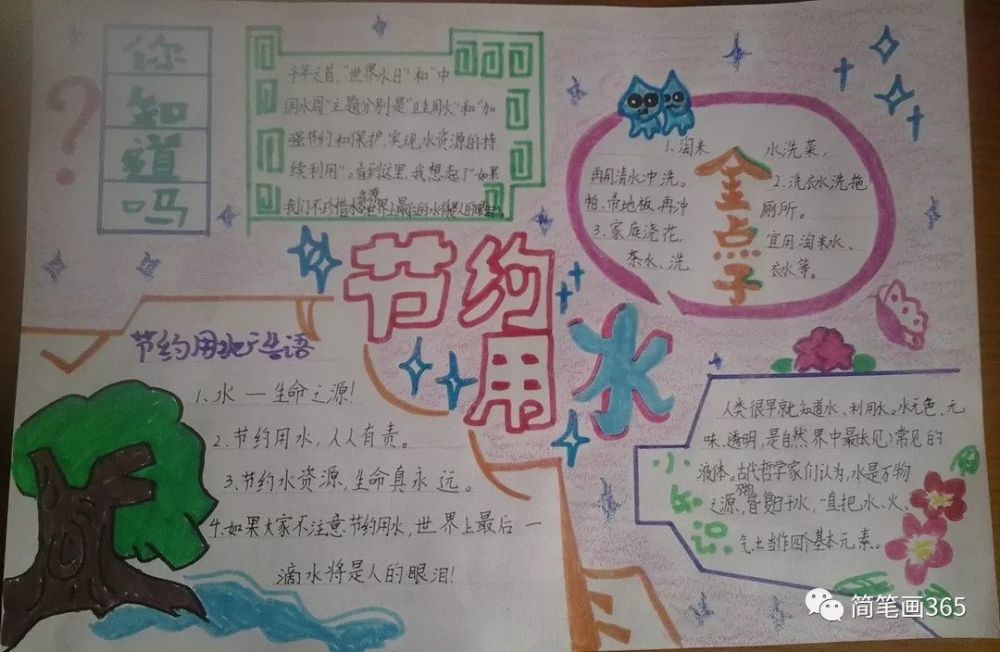 你知道吗
?
千年之首,"世界水日"和"中
国水周"主题分别是"卫生用水"和"加
强节约和保护,实现水资源的持
续利用"。看到这里,我想起了"如果
我们不珍惜水资源世界上最后的水将是人的眼泪
金点子
1、淘米水洗菜,
再用清水冲洗。
2、洗衣水洗拖
帕、帚地板、再冲
厕所。
3、家庭浇花,
宜用淘米水、
茶水、洗
衣水等。
节约
用水
节约用水广告语
1、水一生命之源!
2.节约用水,人人有责。
3、节约水资源,生命真永远。
4.如果大家不注意节约用水,世界上最后一
滴水将是人的眼泪!
小知识
人类很早就知道水、利用水。水无色、无
味、透明,是自然界中最常见的
液体。古代哲学家们认为,水是万物
之源,万物皆复归于水,一直把水、火、
气、土当作四个基本元素。
简笔画365